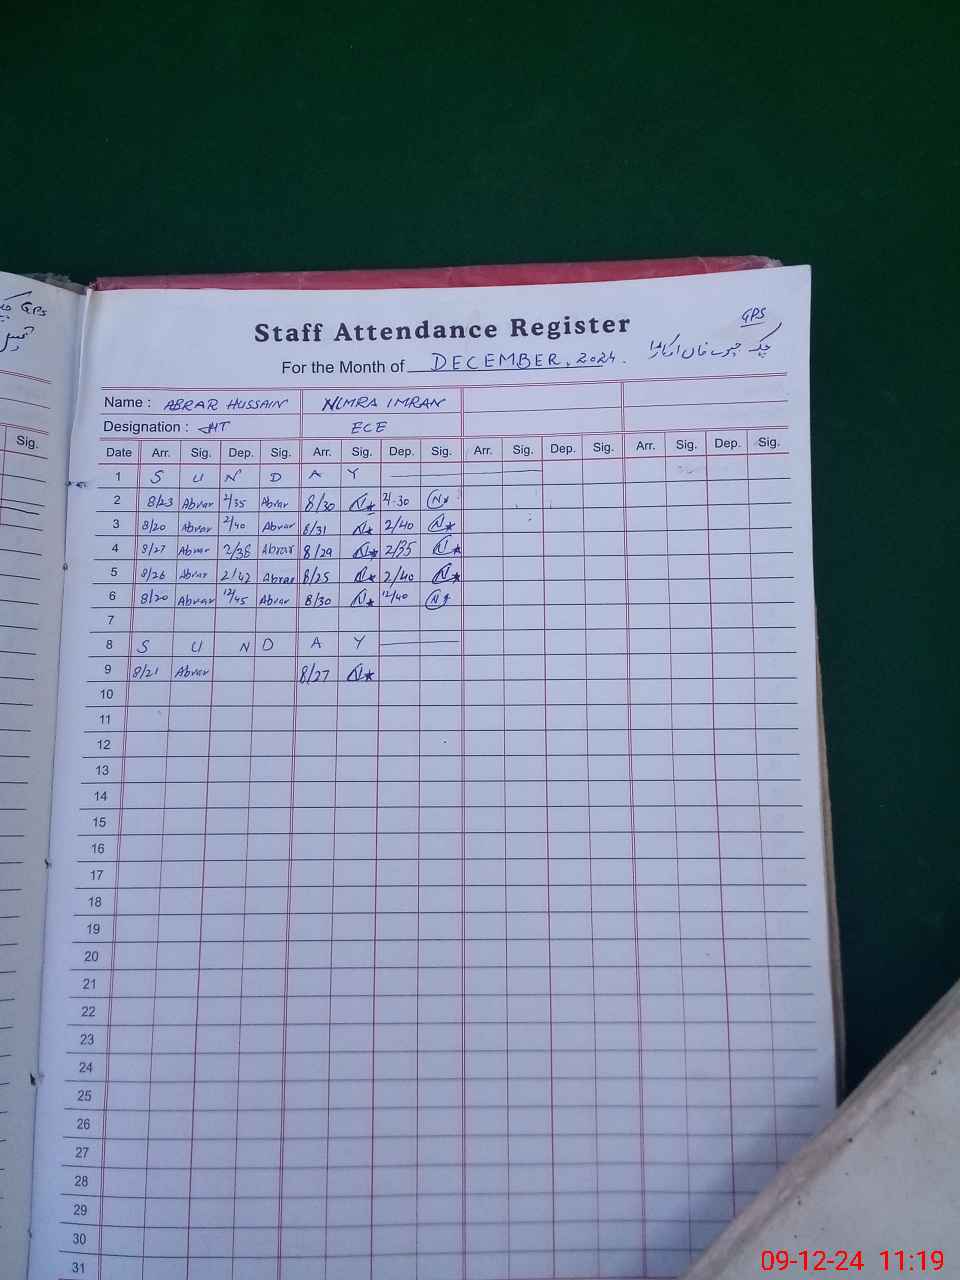 GPS
Sig.
GPS
Staff Attendance Register
For the Month of DECEMBER. 2024.
Name : ABRAR HUSSAIN NIMRA IMRAN
Designation : ECE
Date Arr. Sig. Dep. Sig. Arr. Sig. Dep. Sig. Arr. Sig. Dep. Sig. Arr. Sig. Dep. Sig.
1 S U N D A Y
2 8/23 Abrar 2/35 Abrar 8/30 N 2.30 N
3 8/20 Abrar 2/40 Abrar 8/31 N 2/40 N
4 8/27 Abrar 2/38 Abrar 8/29 N 2/35 N
5 8/26 Abrar 2/42 Abrar 8/25 N 2/40 N
6 8/20 Abrar 12/45 Abrar 8/30 N 12/40 N
7
8 S U N D A Y
9 8/21 Abrar 8/27 N
10
11
12
13
14
15
16
17
18
19
20
21
22
23
24
25
26
27
28
29
30
31
09-12-24 11:19